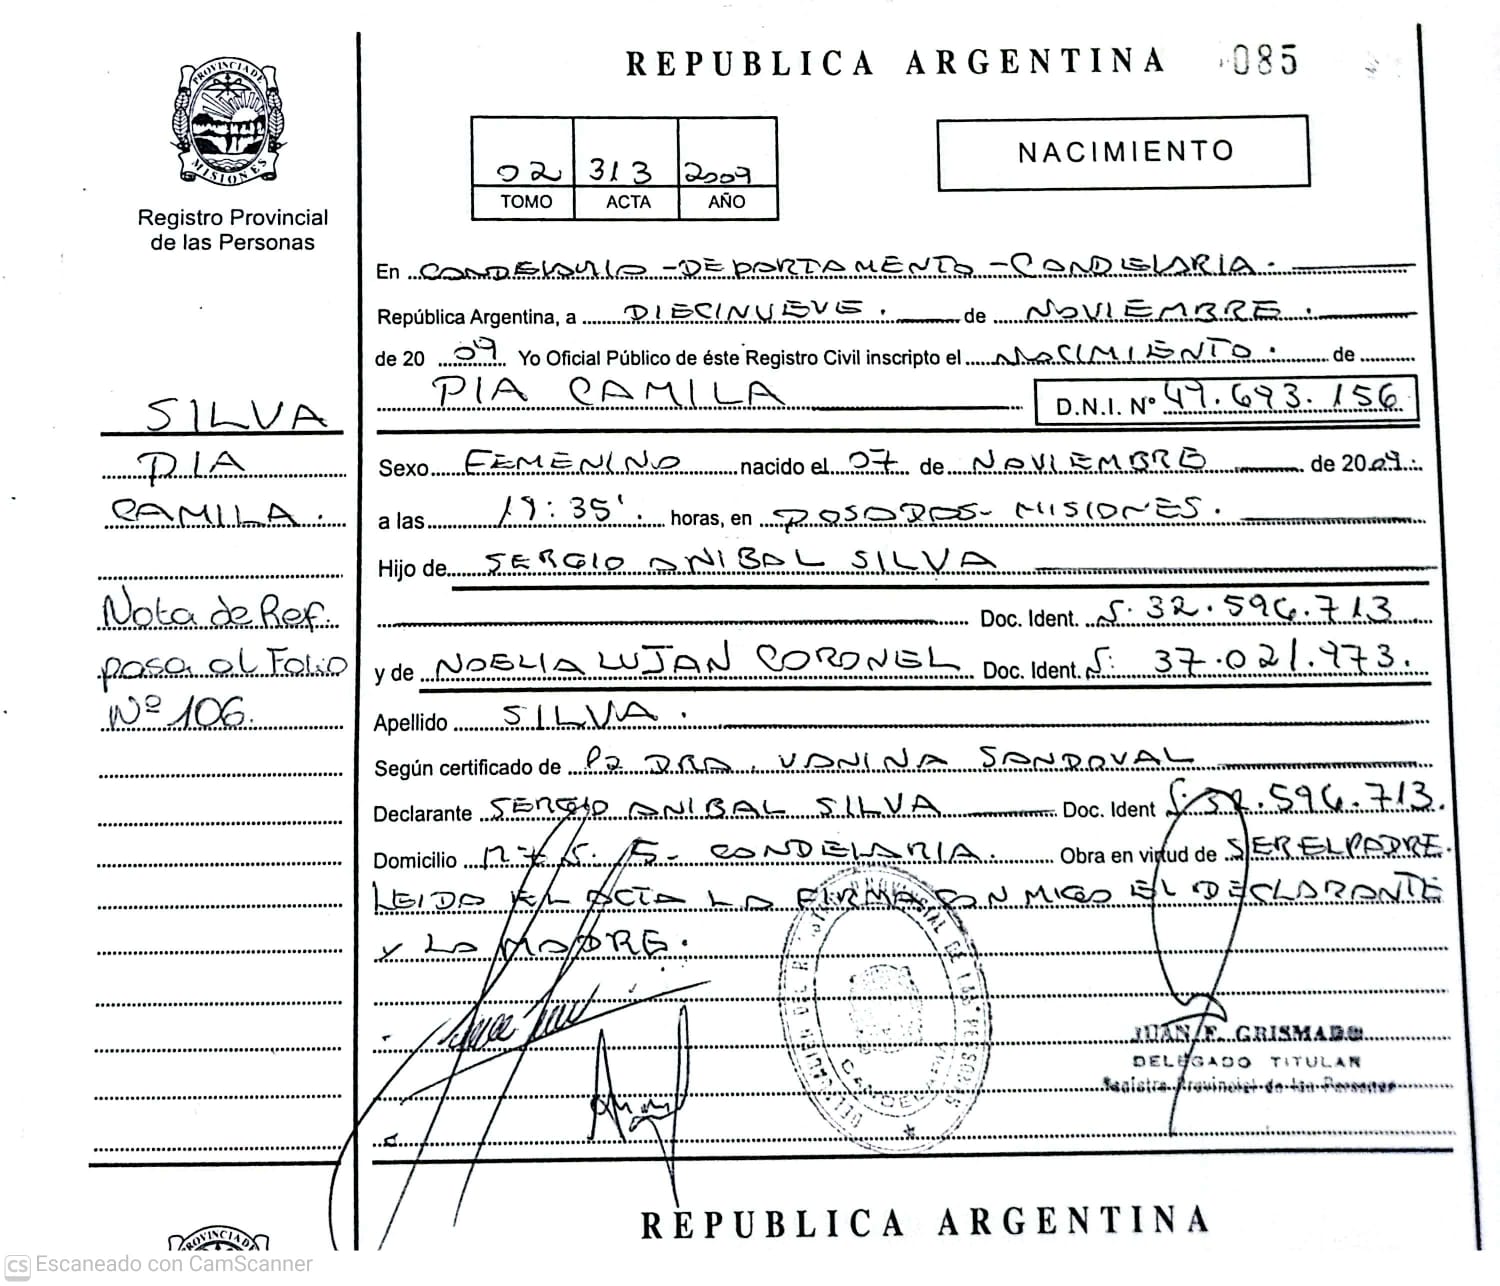 REPUBLICA ARGENTINA 085
PROVINCIA DE
MISIONES
Registro Provincial
de las Personas
02 313 2009
TOMO ACTA AÑO
NACIMIENTO
En CONDELARIA - DEPORTAMENTO - CONDELARIA.
República Argentina, a DIECINUEVE. de NOVIEMBRE.
de 20 09 Yo Oficial Público de éste Registro Civil inscripto el NACIMIENTO. de
PIA CAMILA D.N.I. Nº 49.693.156
SILVA
PIA
CAMILA.
Nota de Ref.
pasa al Folio
Nº 106.
Sexo FEMENINO nacido el 07 de NOVIEMBRE de 2009.
a las 19:35'. horas, en POSADAS - MISIONES.
Hijo de SERGIO ANIBAL SILVA
Doc. Ident. 32.596.713
y de NOELIA LUJAN CORONEL Doc. Ident. 37.021.973.
Apellido SILVA.
Según certificado de DRA. VANINA SANDOVAL
Declarante SERGIO ANIBAL SILVA Doc. Ident 32.596.713.
Domicilio CONDELARIA. Obra en virtud de SER EL PADRE.
LEIDA EL ACTA LA FIRMA CONMIGO EL DECLARANTE
Y LA MADRE.
JUAN F. GRISMADO
DELEGADO TITULAR
Registro Provincial de las Personas
REPUBLICA ARGENTINA
PROVINCIA D
CS Escaneado con CamScanner